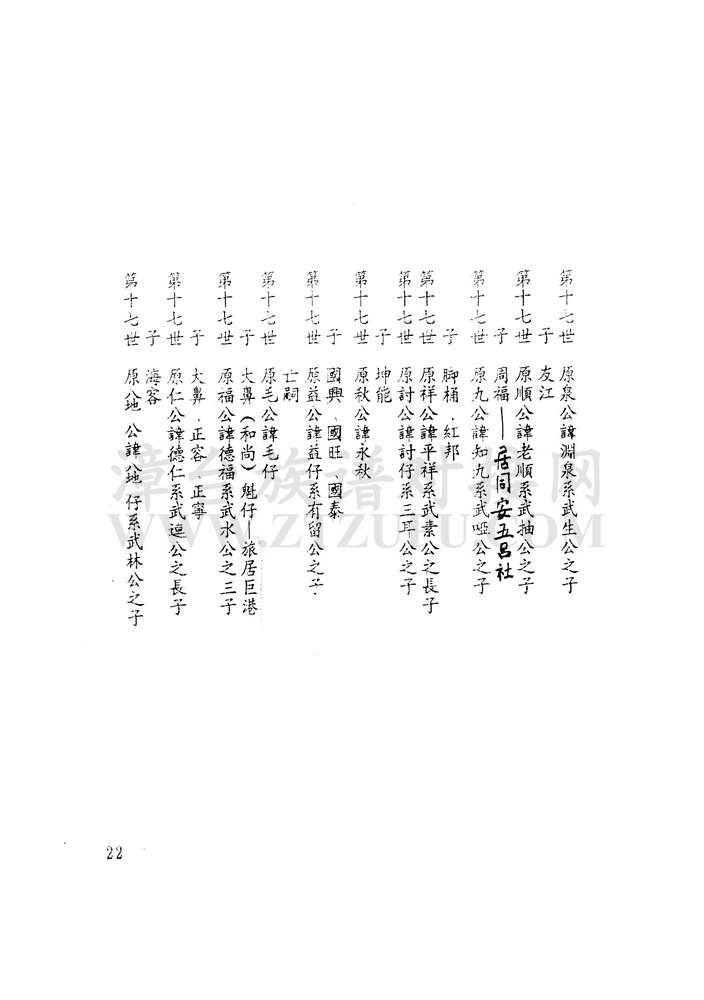 第十七世 原泉公諱淵泉系武生公之子
子 友江
第十七世 原順公諱老順系武抽公之子
子 周福——居同安五呂社
第十七世 原九公諱知九系武啞公之子
子 脚桶．紅邦
第十七世 原祥公諱平祥系武素公之長子
第十七世 原討公諱討仔系三耳公之子
子 坤能
第十七世 原秋公諱永秋
子 國興、國旺、國泰
第十七世 原益公諱益仔系有留公之子
亡嗣
第十七世 原毛公諱毛仔
子 大鼻(和尚)魁仔—旅居巨港
第十七世 原福公諱德福系武水公之三子
子 大鼻．正容．正寧
第十七世 原仁公諱德仁系武 公之長子
子 海客
第十七世 原 公諱 仔系武林公之子
22
漳台族谱 网
WWW.ZTZUPU.COM